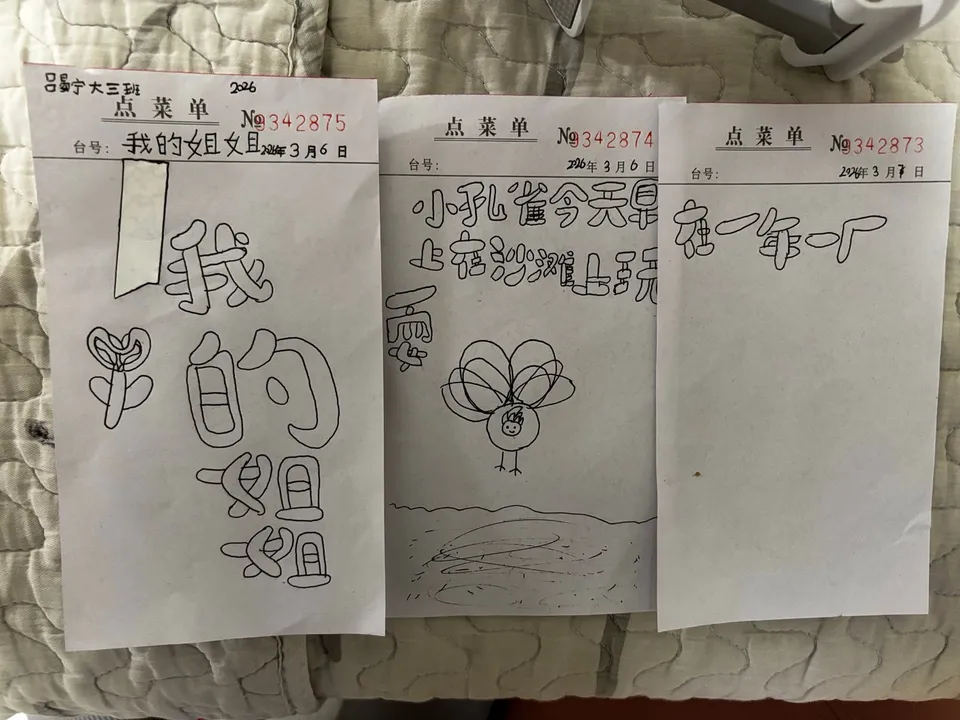 吕易宁大三班 2026
点菜单 №9342875
台号: 我的姐姐 2026年3月6日
我
的
姐
姐
点菜单 №9342874
台号: 2026年3月6日
小孔雀今天早
上在沙滩上玩
耍
点菜单 №9342873
台号: 2026年3月7日
在一年一厂